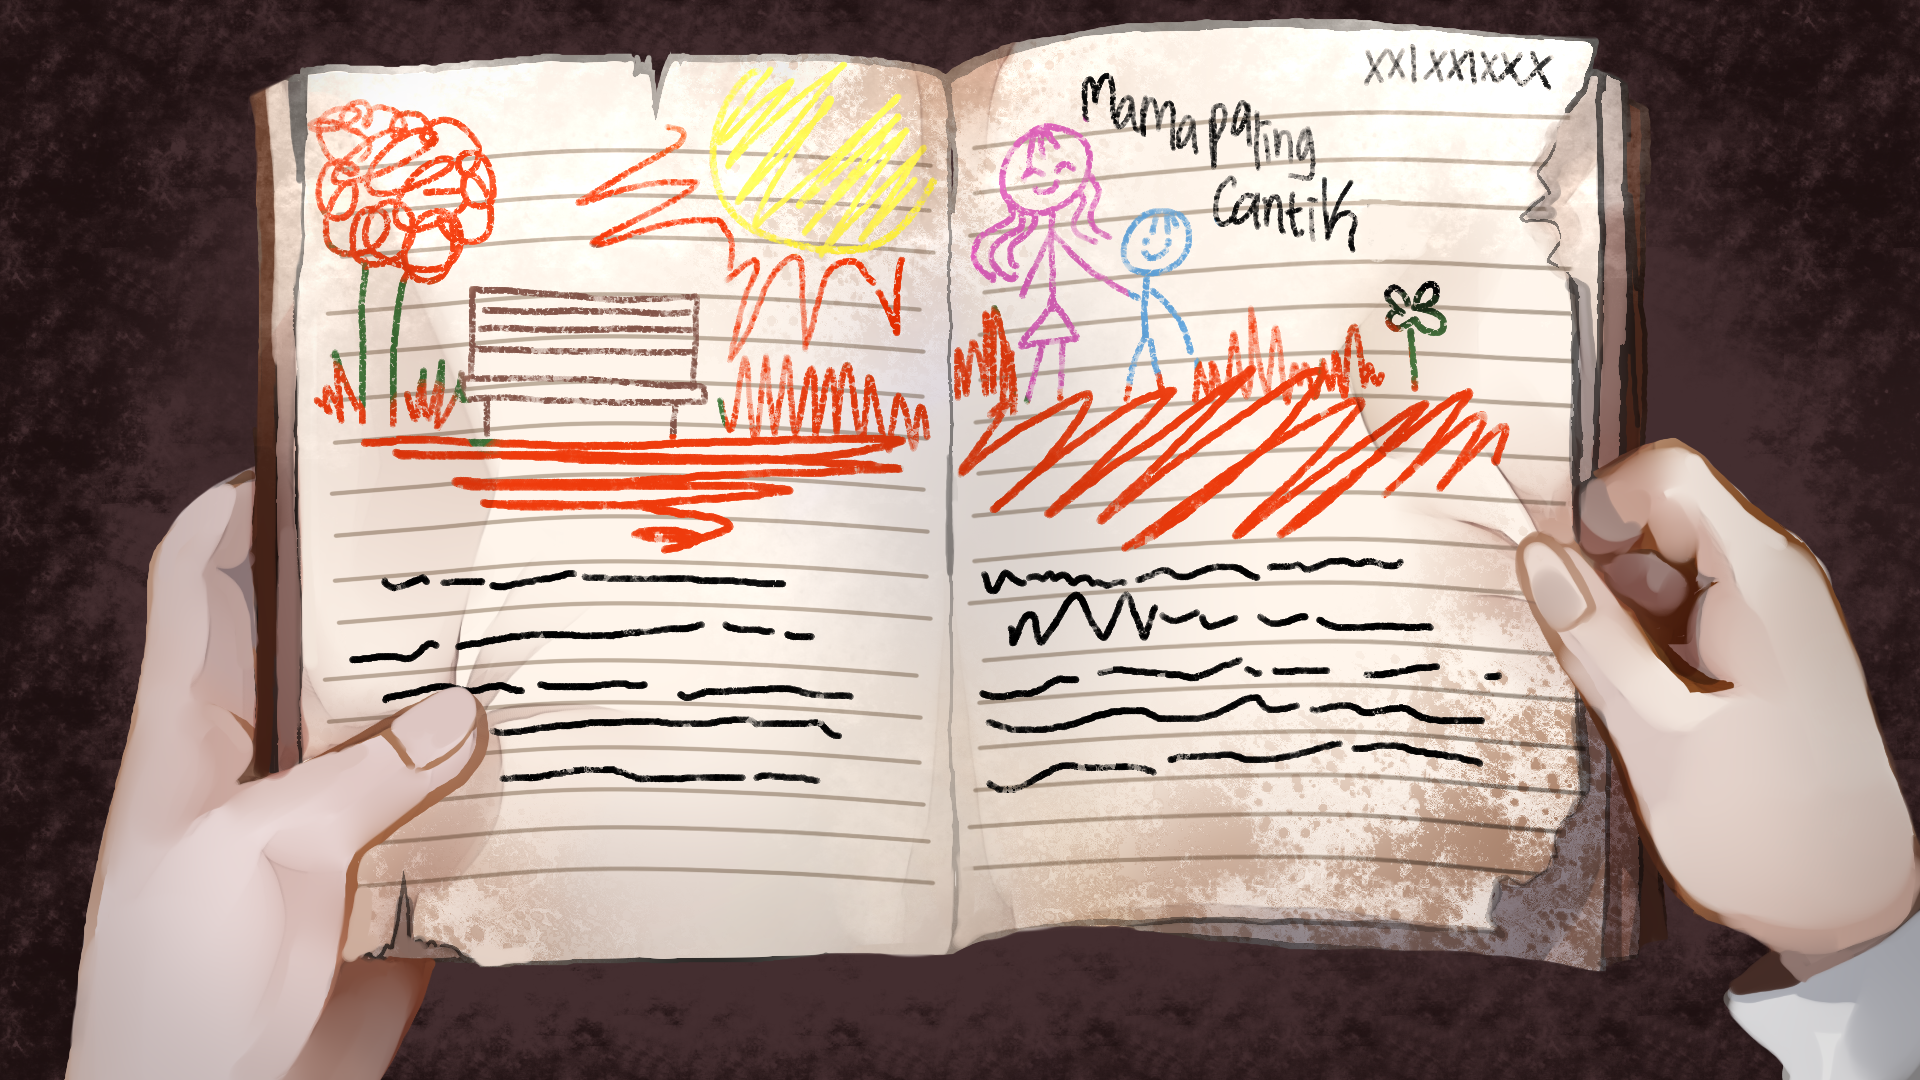 XX/XX/XXXX
Mama paling
Cantik